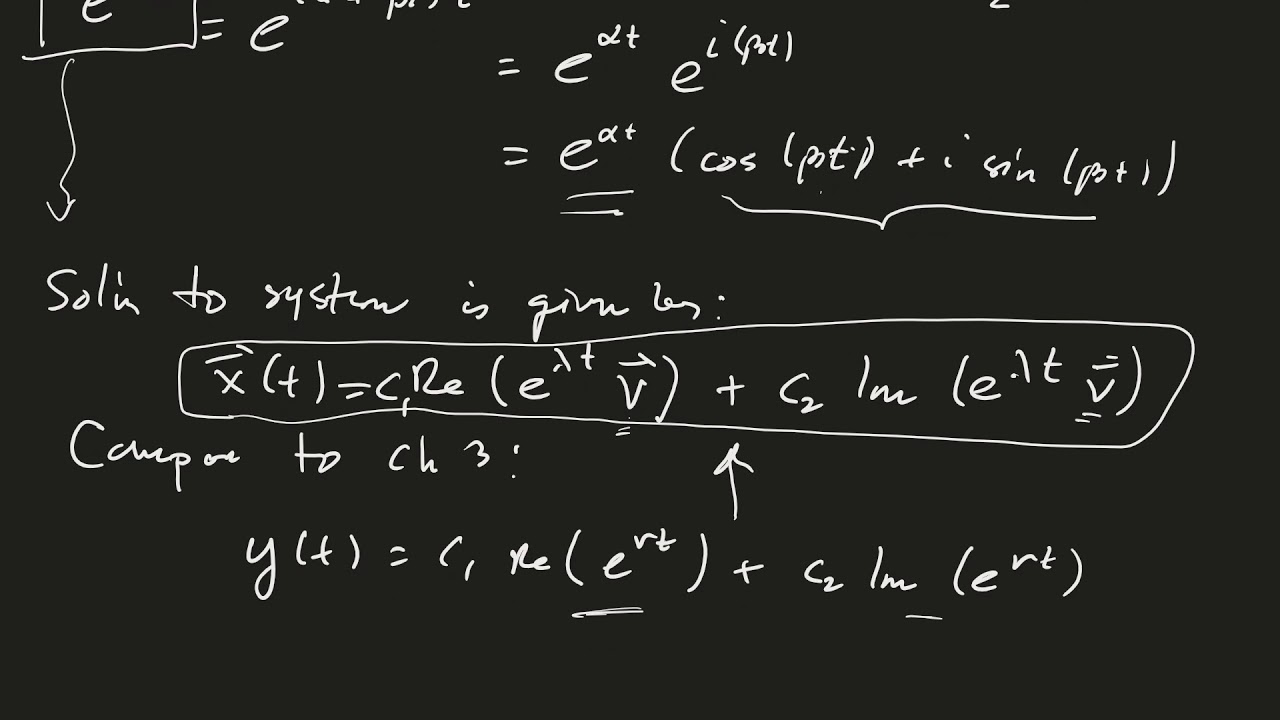 = e
= e^{αt} e^{i(βt)}
= e^{αt} (cos(βt) + i sin(βt))
Sol'n to system is given by:
x⃗(t) = c₁Re(e^{λt} v⃗) + c₂ Im(e^{λt} v⃗)
Compare to ch 3:
y(t) = c₁ Re(e^{rt}) + c₂ Im(e^{rt})